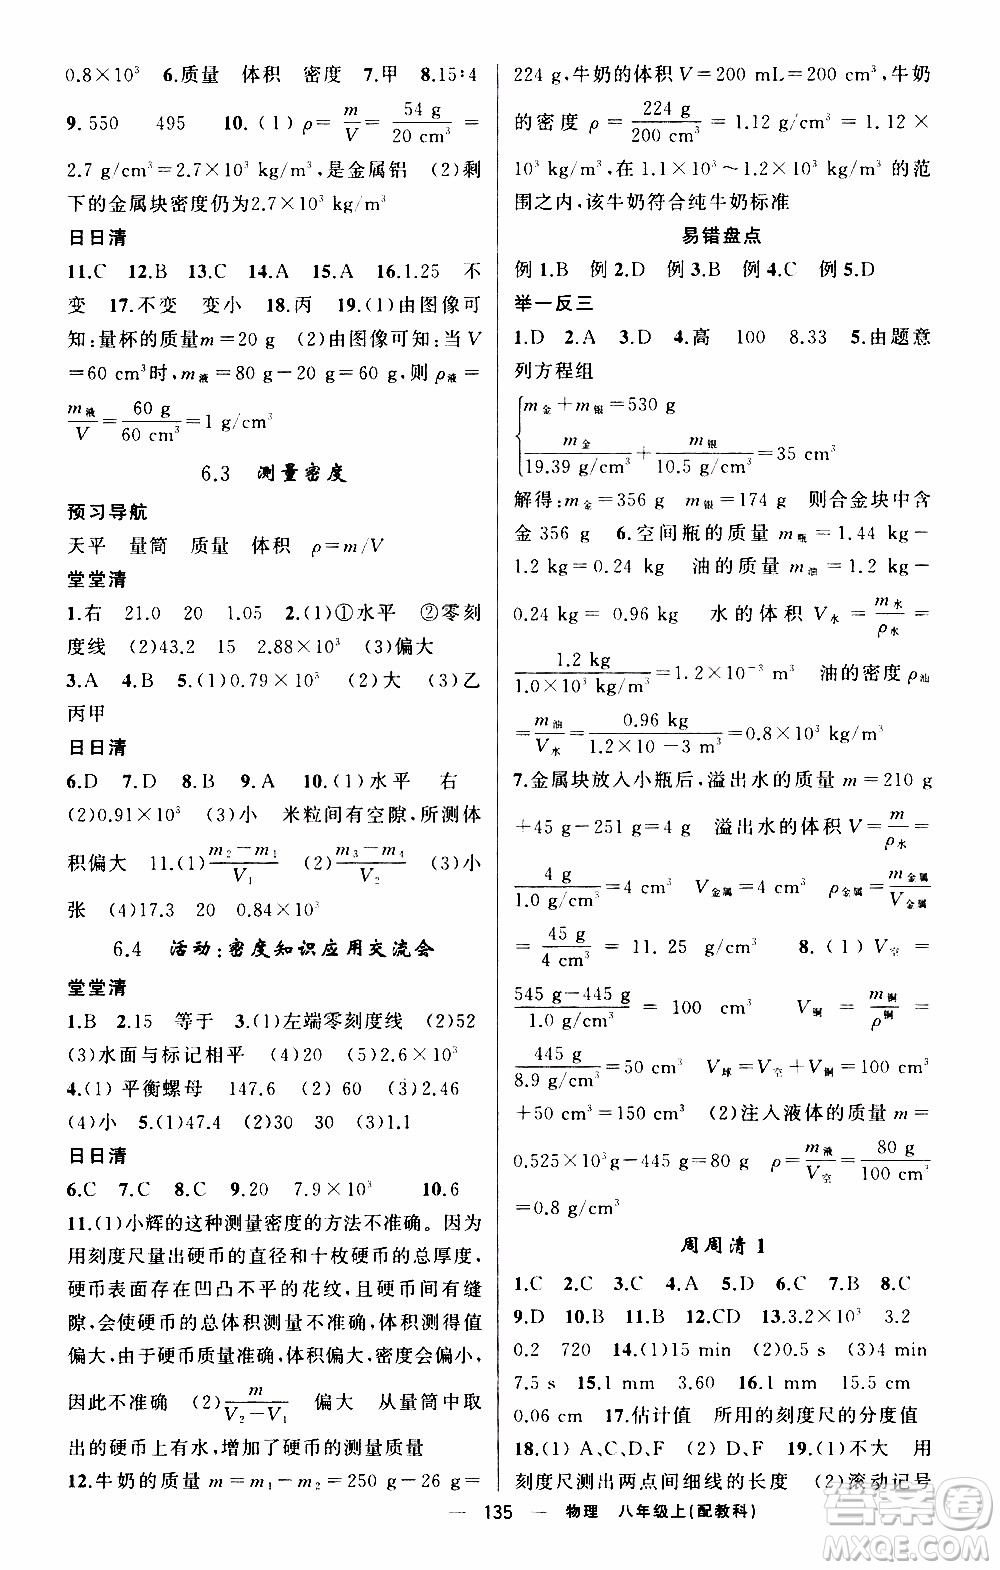 0.8×10³ 6.质量 体积 密度 7.甲 8.15∶4
9.550 495 10.(1)ρ=m/V=54 g/20 cm³=
2.7 g/cm³=2.7×10³ kg/m³,是金属铝 (2)剩
下的金属块密度仍为2.7×10³ kg/m³
日日清
11.C 12.B 13.C 14.A 15.A 16.1.25 不
变 17.不变 变小 18.丙 19.(1)由图像可
知:量杯的质量m=20 g (2)由图像可知:当V
=60 cm³时,m液=80 g-20 g=60 g,则ρ液=
m液/V=60 g/60 cm³=1 g/cm³
6.3 测量密度
预习导航
天平 量筒 质量 体积 ρ=m/V
堂堂清
1.右 21.0 20 1.05 2.(1)①水平 ②零刻
度线 (2)43.2 15 2.88×10³ (3)偏大
3.A 4.B 5.(1)0.79×10³ (2)大 (3)乙
丙甲
日日清
6.D 7.D 8.B 9.A 10.(1)水平 右
(2)0.91×10³ (3)小 米粒间有空隙,所测体
积偏大 11.(1)m₂-m₁/V₁ (2)m₃-m₄/V₂ (3)小
张 (4)17.3 20 0.84×10³
6.4 活动:密度知识应用交流会
堂堂清
1.B 2.15 等于 3.(1)左端零刻度线 (2)52
(3)水面与标记相平 (4)20 (5)2.6×10³
4.(1)平衡螺母 147.6 (2)60 (3)2.46
(4)小 5.(1)47.4 (2)30 30 (3)1.1
日日清
6.C 7.C 8.C 9.20 7.9×10³ 10.6
11.(1)小辉的这种测量密度的方法不准确。因为
用刻度尺量出硬币的直径和十枚硬币的总厚度,
硬币表面存在凹凸不平的花纹,且硬币间有缝
隙,会使硬币的总体积测量不准确,体积测得值
偏大,由于硬币质量准确,体积偏大,密度会偏小,
因此不准确 (2)m/V₂-V₁ 偏大 从量筒中取
出的硬币上有水,增加了硬币的测量质量
12.牛奶的质量 m=m₁-m₂=250 g-26 g=
224 g,牛奶的体积V=200 mL=200 cm³,牛奶
的密度 ρ=224 g/200 cm³=1.12 g/cm³=1.12×
10³ kg/m³,在1.1×10³～1.2×10³ kg/m³的范
围之内,该牛奶符合纯牛奶标准
易错盘点
例1.B 例2.D 例3.B 例4.C 例5.D
举一反三
1.D 2.A 3.D 4.高 100 8.33 5.由题意
列方程组
m金+m银=530 g
m金/19.39 g/cm³+m银/10.5 g/cm³=35 cm³
解得:m金=356 g m银=174 g 则合金块中含
金356 g 6.空间瓶的质量 m瓶=1.44 kg-
1.2 kg=0.24 kg 油的质量 m油=1.2 kg-
0.24 kg=0.96 kg 水的体积V水=m水/ρ水=
1.2 kg/1.0×10³ kg/m³=1.2×10⁻³ m³ 油的密度ρ油
=m油/V水=0.96 kg/1.2×10-3 m³=0.8×10³ kg/m³
7.金属块放入小瓶后,溢出水的质量 m=210 g
+45 g-251 g=4 g 溢出水的体积V=m/ρ水=
4 g/1.0 g/cm³=4 cm³ V金属=4 cm³ ρ金属=m金属/V金属
=45 g/4 cm³=11.25 g/cm³ 8.(1)V空=
545 g-445 g/1.0 g/cm³=100 cm³ V铜=m铜/ρ铜=
445 g/8.9 g/cm³=50 cm³ V球=V空+V铜=100 cm³
+50 cm³=150 cm³ (2)注入液体的质量m=
0.525×10³g-445 g=80 g ρ=m液/V空=80 g/100 cm³
=0.8 g/cm³
周周清1
1.C 2.C 3.C 4.A 5.D 6.C 7.B 8.C
9.D 10.B 11.B 12.CD 13.3.2×10³ 3.2
0.2 720 14.(1)15 min (2)0.5 s (3)4 min
7.5 s 15.1 mm 3.60 16.1 mm 15.5 cm
0.06 cm 17.估计值 所用的刻度尺的分度值
18.(1)A、C、D、F (2)C、D、F 19.(1)不大 用
刻度尺测出两点间细线的长度 (2)滚动记号
— 135 — 物理 八年级上(配教科)
答案圈
MXQE.COM